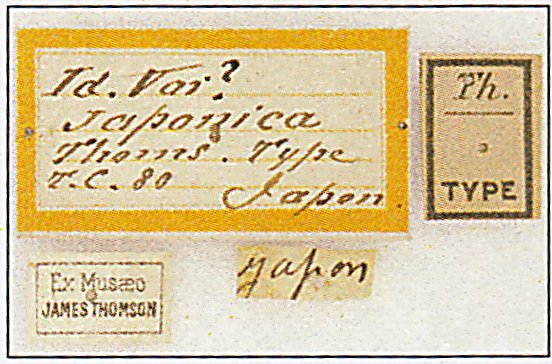 Id. Var?
Japonica
Thoms. Type
T.C. 80
Japon.
Ph.
TYPE
Ex Musæo
JAMES THOMSON
Japon